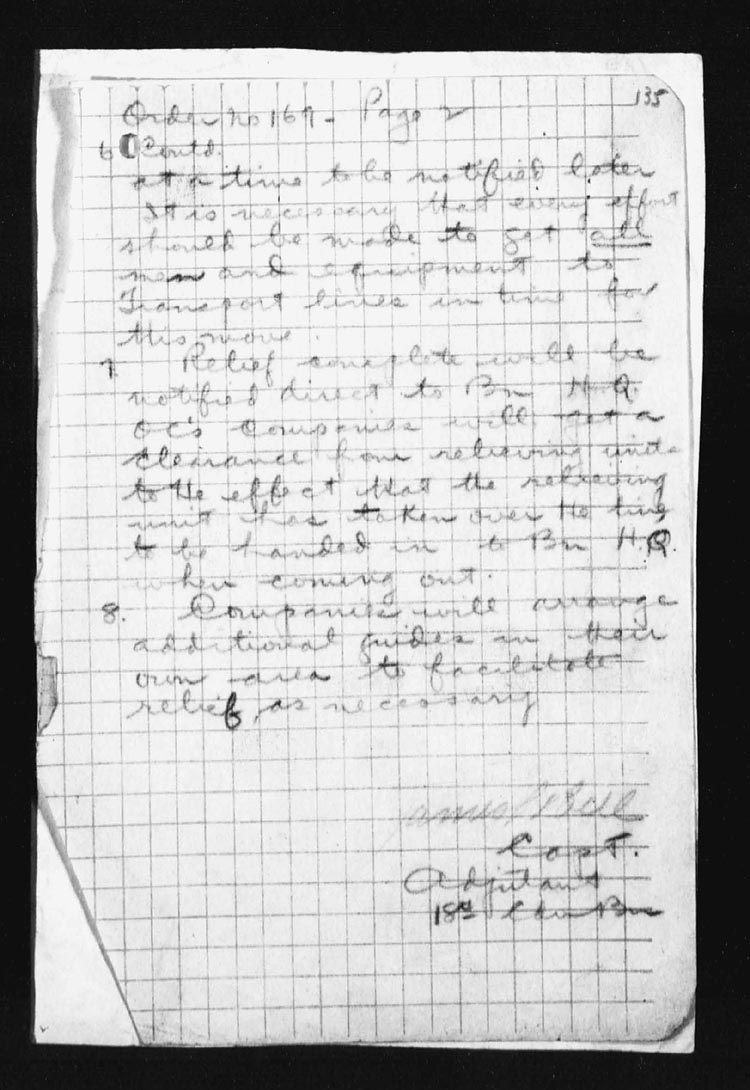 135
Order no 169 - Page 2
6 Contd.
at a time to be notified later
It is necessary that every effort
should be made to get all
men and equipment to
Transport lines in time for
this move.
7 Relief complete will be
notified direct to Bn H.Q.
OC's Companies will get a
clearance from relieving units
to the effect that the relieving
unit has taken over the line
to be handed in to Bn H.Q.
when coming out.
8. Companies will arrange
additional guides in their
own area to facilitate
relief, as necessary
Capt.
Adjutant
18th Cdn Bn